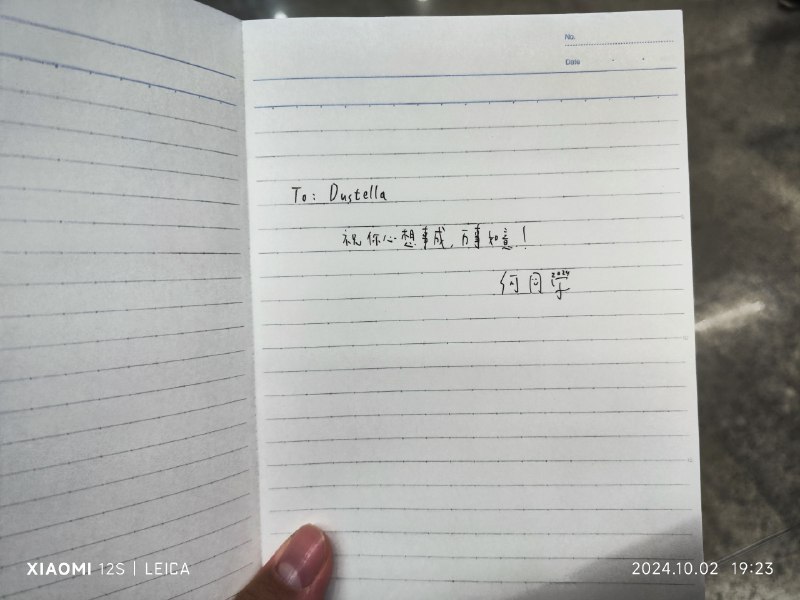 No.
Date
To: Dustella
祝你心想事成，万事如意！
何同学
2024
XIAOMI 12S | LEICA
2024.10.02 19:23